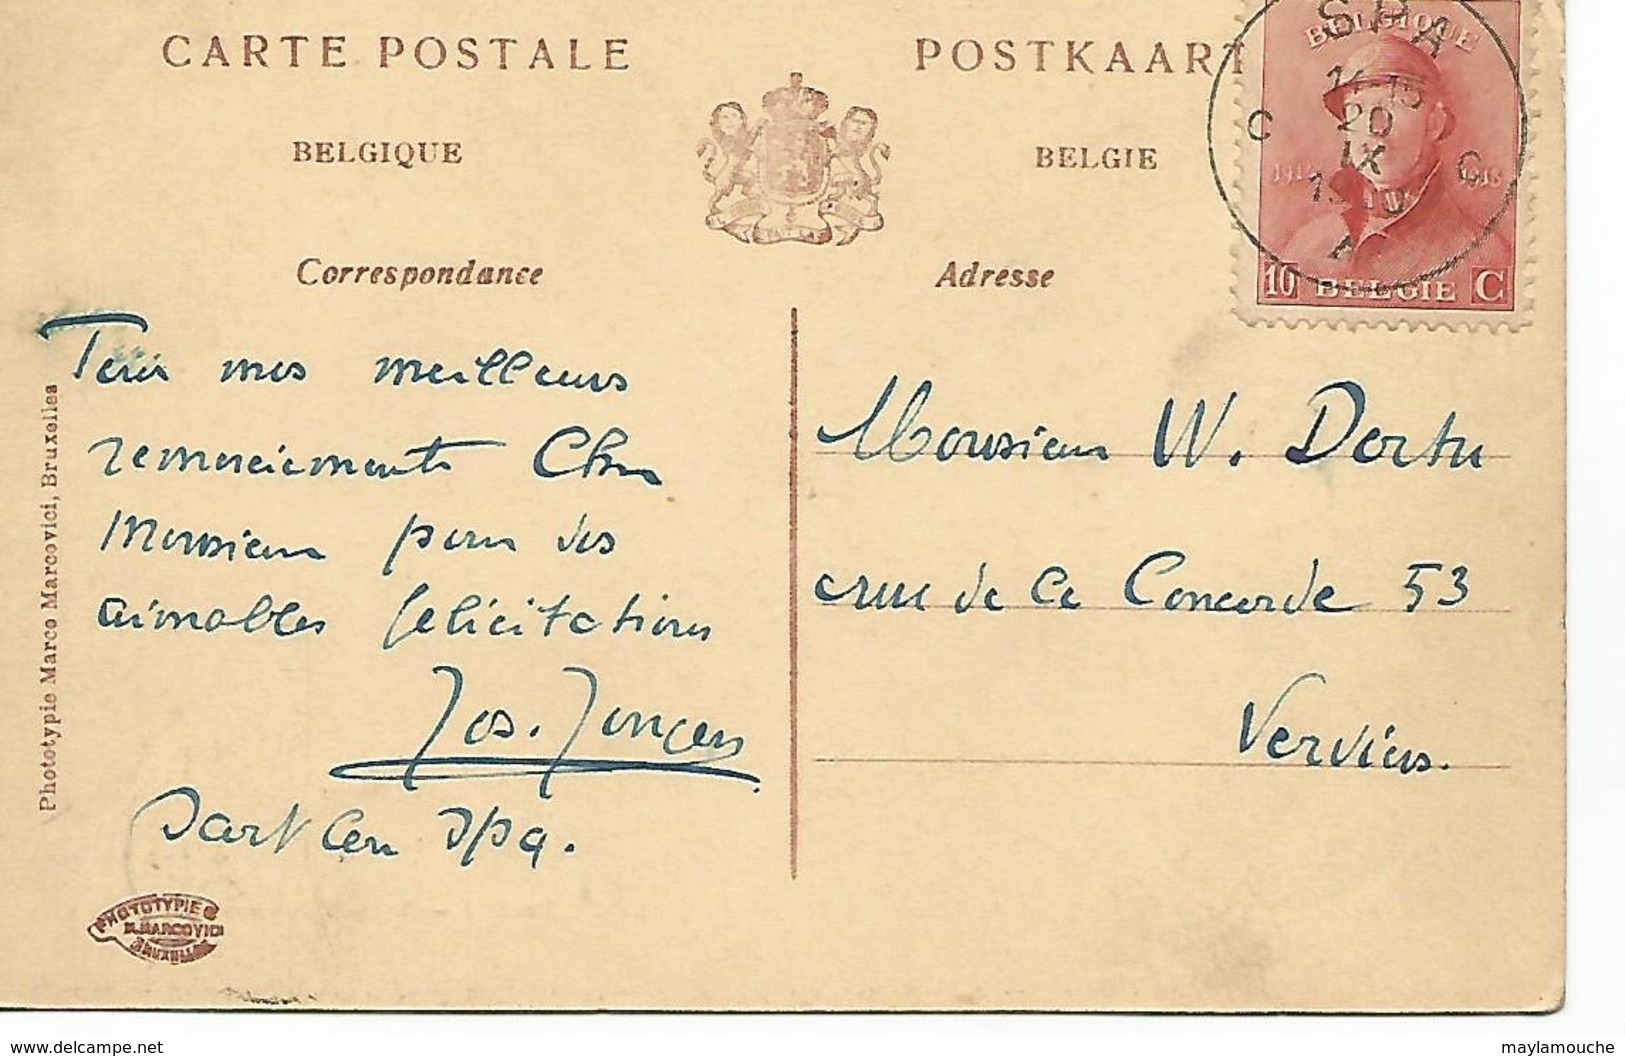 CARTE POSTALE
POSTKAART
BELGIQUE
BELGIE
Correspondance
Adresse
BELGIQUE
1914 1918
10 BELGIE C
SPA
20
IX
C C
A
mes meilleurs
remerciements Cher
Monsieur pour vos
aimables félicitations
Jos. Jongen
Sart lez Spa.
Monsieur W. Dortu
rue de la Concorde 53
Verviers.
Phototypie Marco Marcovici, Bruxelles
PHOTOTYPIE
M. MARCOVICI
BRUXELLES
www.delcampe.net
maylamouche